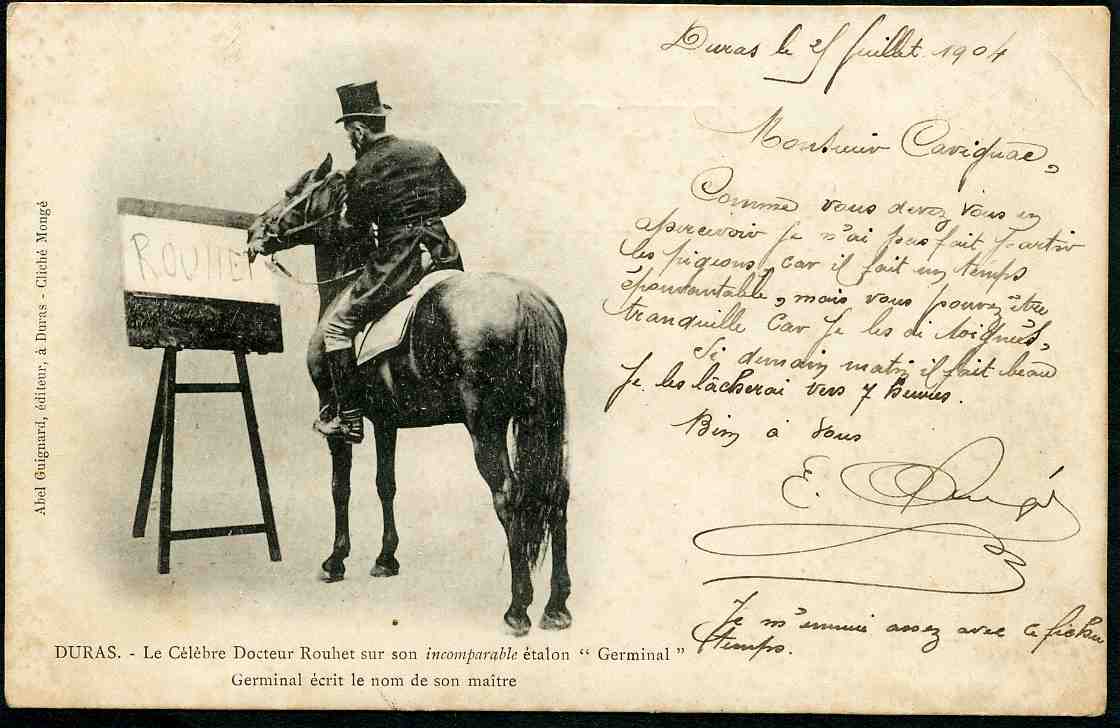 Duras le 25 Juillet 1904
Monsieur Cavignac,
Comme vous devez vous en
apercevoir je n'ai pas fait partir
les pigeons, car il fait un temps
épouvantable, mais vous pouvez être
tranquille car je les ai soignés,
Si demain matin il fait beau
je les lâcherai vers 7 heures.
Bien à vous
E.
Je m'ennuie assez avec ce fichu
temps.
ROUHET
Abel Guignard, éditeur, à Duras - Cliché Mongé
DURAS. - Le Célèbre Docteur Rouhet sur son incomparable étalon “ Germinal ”
Germinal écrit le nom de son maître